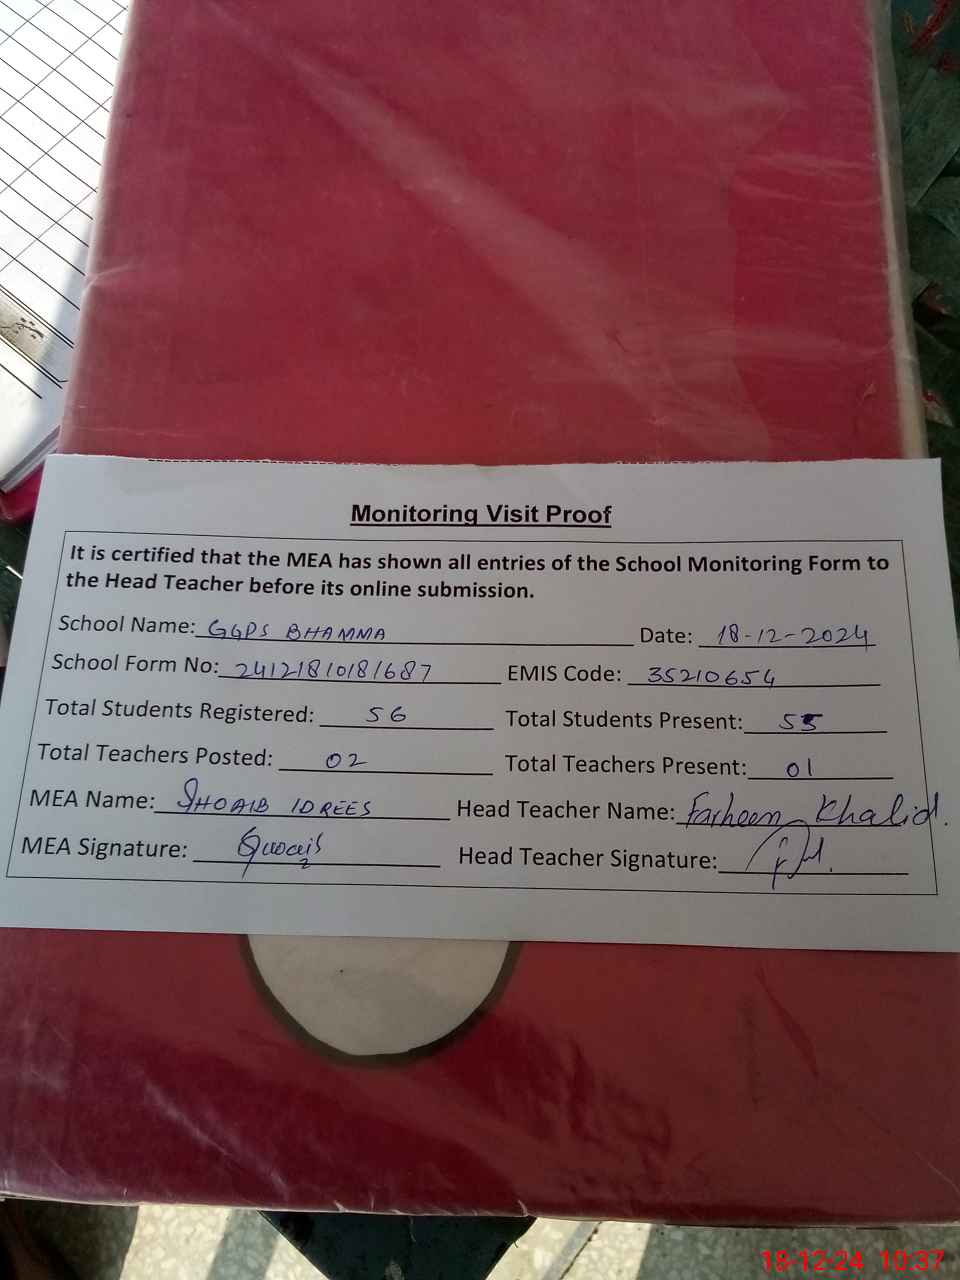 Monitoring Visit Proof
It is certified that the MEA has shown all entries of the School Monitoring Form to
the Head Teacher before its online submission.
School Name: GGPS BHAMMA Date: 18-12-2024
School Form No: 24121810181687 EMIS Code: 35210654
Total Students Registered: 56 Total Students Present: 55
Total Teachers Posted: 02 Total Teachers Present: 01
MEA Name: SHOAIB IDREES Head Teacher Name: Farheen Khalid.
MEA Signature: Head Teacher Signature:
18-12-24 10:37